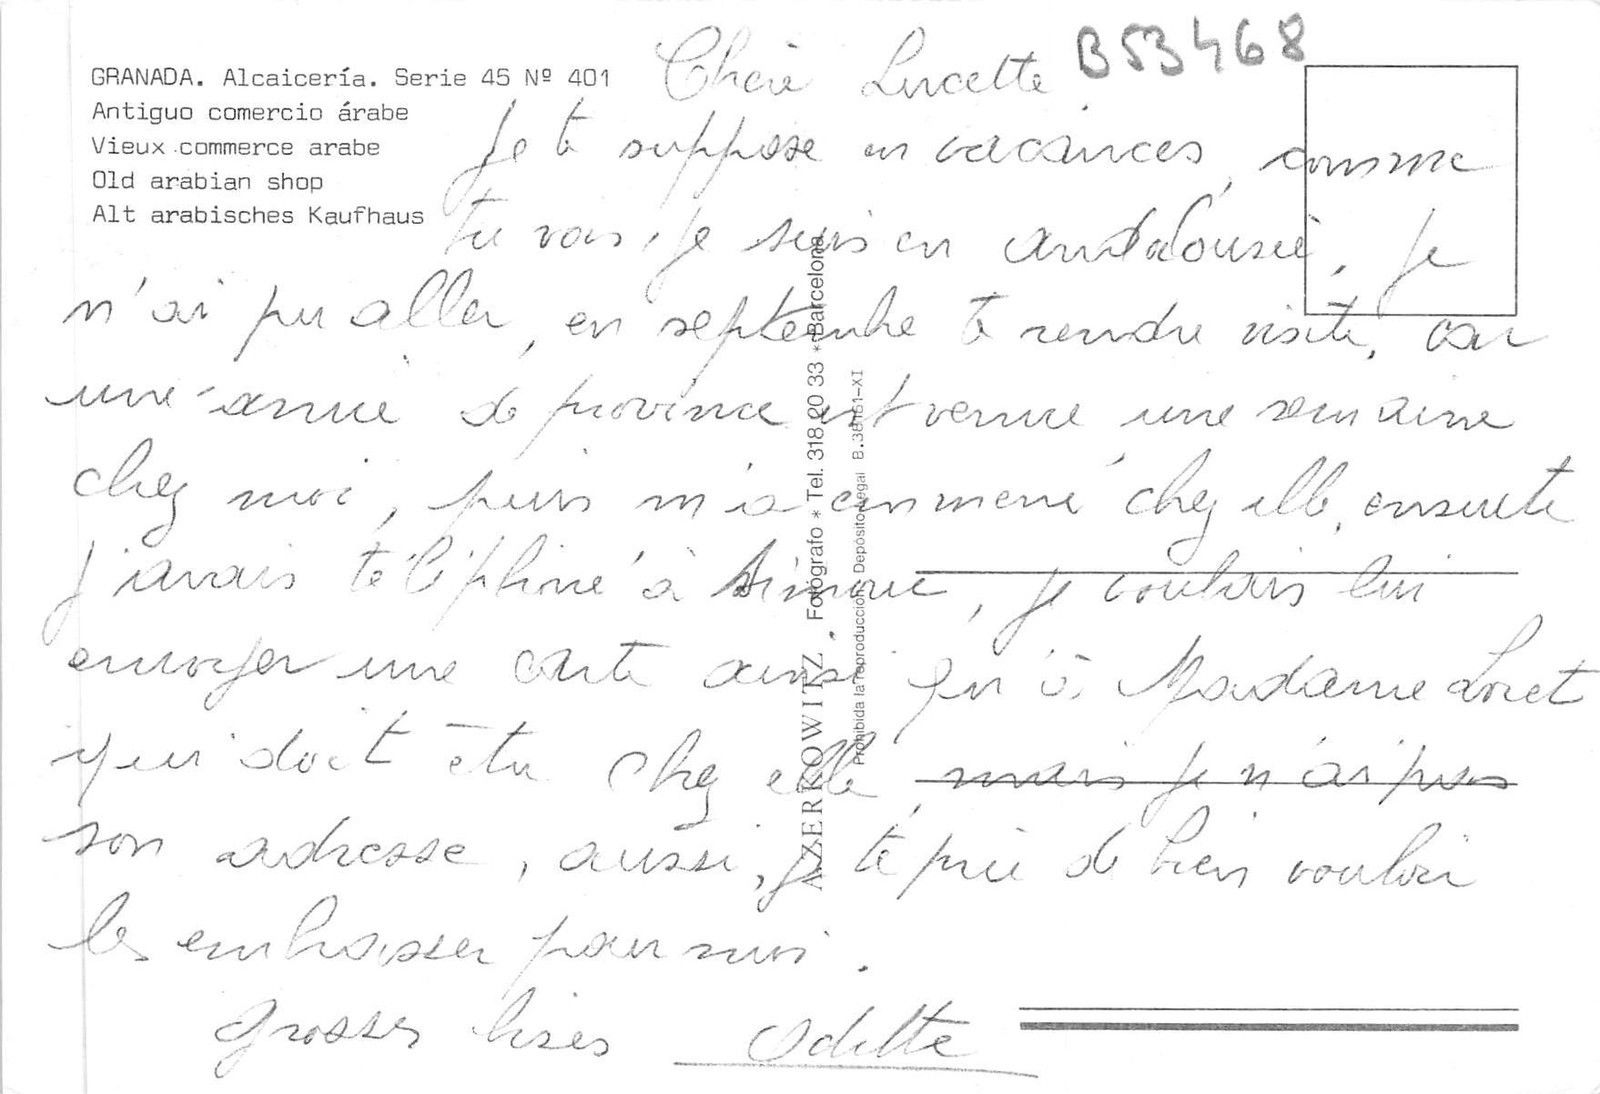 GRANADA. Alcaicería. Serie 45 Nº 401
Antiguo comercio árabe
Vieux commerce arabe
Old arabian shop
Alt arabisches Kaufhaus
B53468
Chère Lucette
Je te suppose en vacances, comme
tu vois, je suis en andalousie, je
n'ai pu aller, en septembre te rendre visite, car
une amie de province est venue une semaine
chez moi, puis m'a emmené chez elle, ensuite
j'avais téléphoné à Simone, je voulais lui
envoyer une carte ainsi qu'à Madame Loret
qui doit être chez elle, mais je n'ai pas
son adresse, aussi, je te prie de bien vouloir
les embrasser pour moi.
grosses bises Odette
AZERKOWITZ Fotógrafo * Tel. 318 20 33 * Barcelona
Prohibida la reproducción Depósito legal B.38161-XI